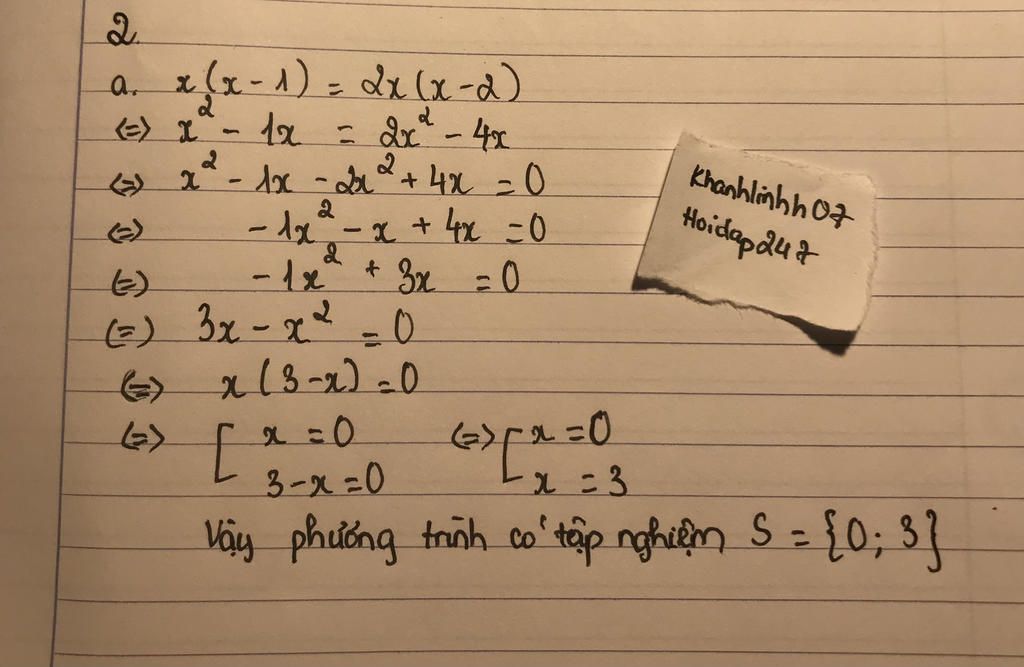 2.
a. x(x - 1) = 2x(x - 2)
<=> x² - 1x = 2x² - 4x
<=> x² - 1x - 2x² + 4x = 0
<=> - 1x² - x + 4x = 0
(=) - 1x² + 3x = 0
(=) 3x - x² = 0
<=> x(3 - x) = 0
<=> [ x = 0 <=> [ x = 0
3 - x = 0 x = 3
Vậy phương trình có tập nghiệm S = {0; 3}
Khanhlinhh07
Hoidap247